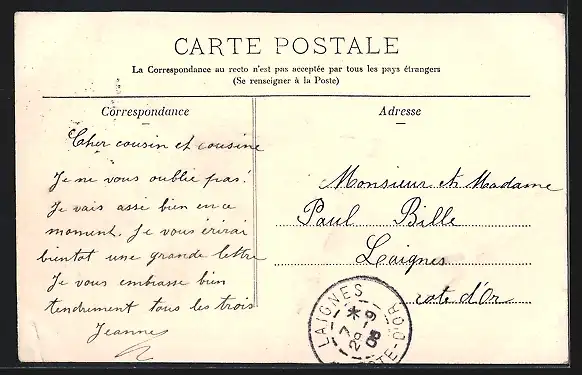 CARTE POSTALE
La Correspondance au recto n'est pas acceptée par tous les pays étrangers
(Se renseigner à la Poste)
Correspondance
Cher cousin et cousine
Je ne vous oublie pas!
Je vais assé bien en ce
moment. Je vous écrirai
bientot une grande lettre
Je vous embrasse bien
tendrement tous les trois
Jeanne
Adresse
Monsieur et Madame
Paul Bille
Laignes
cote d'Or
LAIGNES
7 * 29-9 08
COTE-D'OR